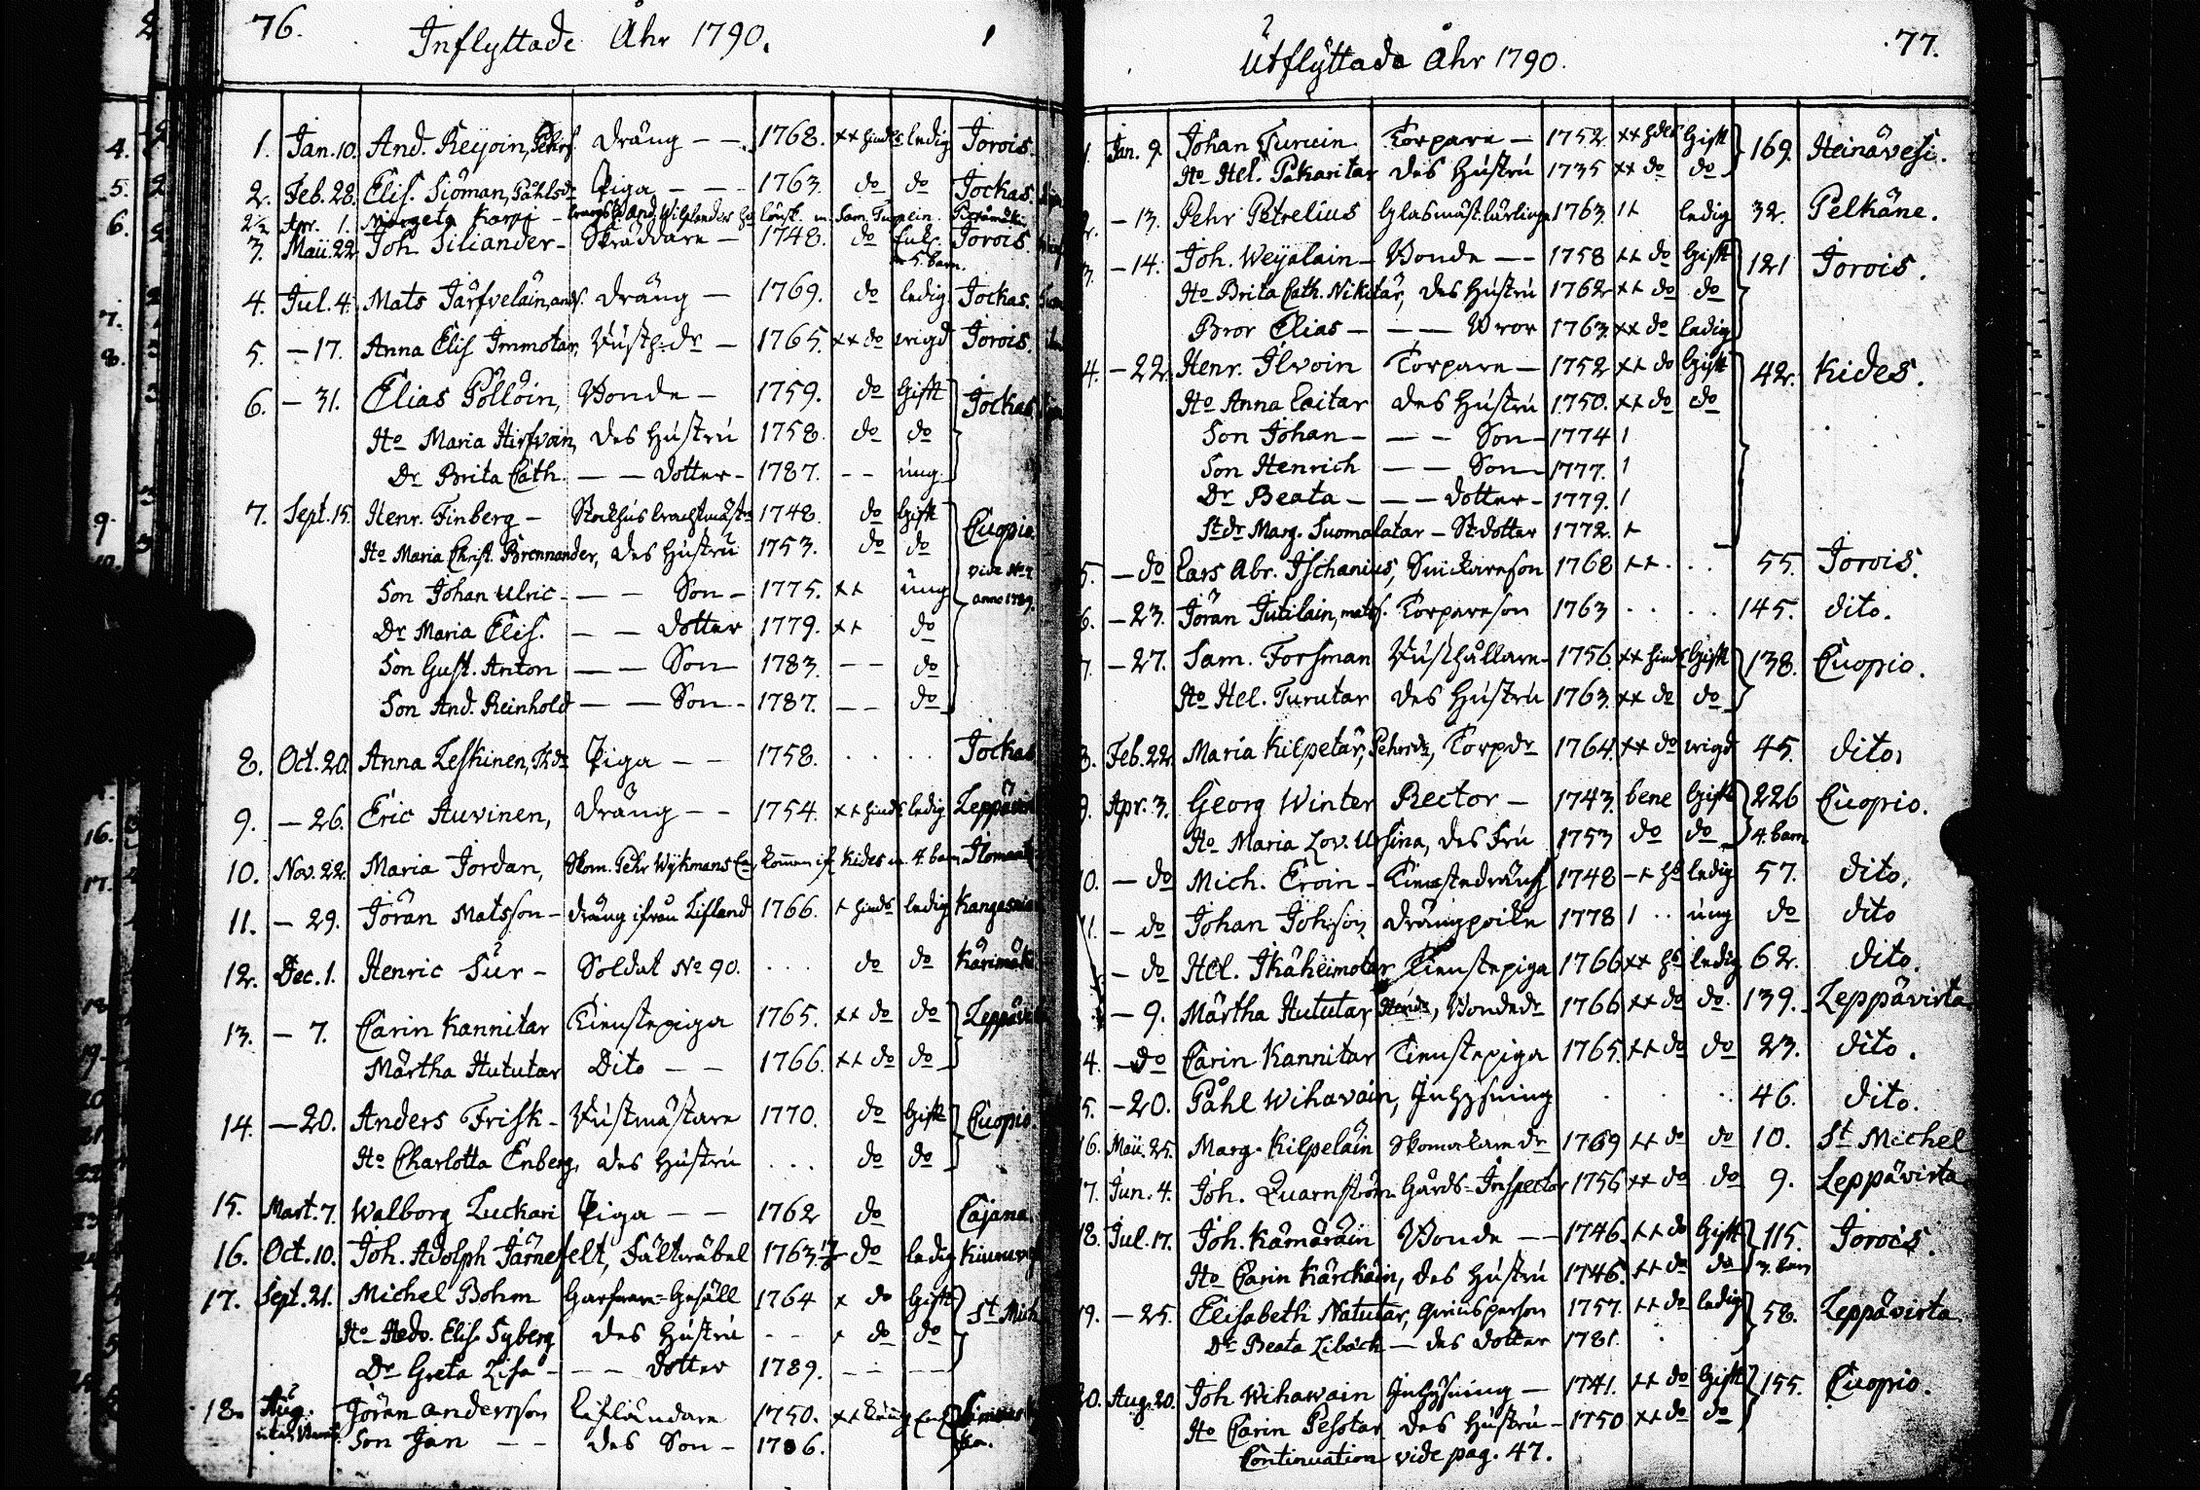 76.
Inflyttade Åhr 1790.
1. Jan. 10. And. Reyoin, Pehrs. Dräng – – 1768. ++ hinds ledig Jorois.
2. Feb. 28. Elis. Siöman, Påhlsdr Piga – – 1763. do do Jockas.
2½ Apr. 1. Margeta And. Wiklanders
3. Maii. 22 Joh. Siliander – Skräddare – 1748. do Enk. Jorois.
m 5. barn.
4. Jul. 4. Mats Järfveläin, Dräng – 1769. do ledig. Jockas.
5. – 17. Anna Elis Immotar, 1765. ++ do wigd Jorois.
6. – 31. Elias Pöllöin, Bonde – 1759. do Gift Jockas
Ho Maria Hirfvoin, Des Hustru 1758. do do
Dr Brita Cath. – – Dotter – 1787. – – ung
7. Sept. 15 Henr. Finberg – 1748. do Gift Cuopio.
Ho Maria Christ. Brennander, Des Hustru 1753. do do
vide No 7
Son Johan Ulric – – – Son – 1775. ++ ung anno 1789.
Dr Maria Elis. – – Dotter 1779. ++ do
Son Gust. Anton – – Son – 1783. – – do
Son And. Reinhold – – Son – 1787. – – do
8. Oct. 20. Anna Leskinen, Piga – – 1758. . . . . Jockas
9. – 26. Eric Auvinen, Dräng – – 1754. ++ hinds ledig Leppävir
10. Nov. 22. Maria Jordan, Skom. Pehr Wijkmans kommen if Kides m 4. barn
11. – 29. Jöran Matsson – Dräng ifrån Lifland 1766. + hinds ledig Kangas
12. Dec. 1. Henric Sur – Soldat No 90. . . . do do Kärimäki
13. – 7. Carin Kannitar Tienstepiga 1765. ++ do do Leppävi
Märtha Hututar Dito – – 1766. ++ do do
14. – 20. Anders Frisk – Rustmästare 1770. do Gift Cuopio.
Ho Charlotta Enberg, Des Hustru . . . do do
15. Mart. 7. Walborg Luckari Piga – – 1762 do Cajana
16. Oct. 10. Joh. Adolph Järnefelt, Fältwäbel 1763 do ledig Kiuruv
17. Sept. 21. Michel Bohm Garfvare-Gesäll 1764 + do Gift St Mich
Ho Hedv. Elis. Syberg Des Hustru – – + do do
Dr Greta Lisa – – – Dotter 1789. – – – –
18. Aug. Jöran Andersson Lifländare 1750.
Son Jan – – Des Son – 1786.
77.
Utflyttade Åhr 1790.
1. Jan. 9. Johan Turuin Torpare – 1752. ++ Gift 169. Heinävesi.
Ho Hel. Pakaritar Des Hustru 1735 ++ do do
2. – 13. Pehr Petrelius Glasmäst. lärling 1763. ledig 32. Pelkäne.
3. – 14. Joh. Weyalain – Bonde – – 1758 ++ do Gift 121 Jorois.
Ho Brita Cath. Nikitar, Des Hustru 1762 ++ do do
Bror Elias – – – Bror 1763. ++ do ledig
4. – 22. Henr. Ilvoin Torpare – 1752 ++ do Gift 42. Kides.
Ho Anna Laitar Des Hustru 1750. ++ do do
Son Johan – – – Son – 1774 1
Son Henrich – – Son – 1777. 1
Dr Beata – – – Dotter – 1779. 1
Stdr Marg. Suomalatar – St. Dotter 1772. +
5. – do Lars Abr. Ischanius, Snickareson 1768 ++ . . . 55. Jorois.
6. – 23. Jöran Jutilain, mats. Torpareson 1763 . . . . 145. Dito.
7. – 27. Sam. Forsman Rusthållare – 1756. ++ hinds Gift 138. Cuopio.
Ho Hel. Turutar Des Hustru 1763. ++ do do
8. Feb. 22. Maria Kilpetar, Pehrsdr, Torpdr 1764. ++ do wigd 45. Dito,
9. Apr. 3. Georg Winter Rector – 1743. bene Gift 226 Cuopio.
Ho Maria Lov. Ursina, Des Fru 1753 do do 4. barn
10. – do Mich. Eroin – Tienstedräng 1748 – + hs ledig 57. Dito.
11. – do Johan Johson, Drängpoike 1778 1 . . ung do Dito
– do Hel. Ikäheimotar Tienstepiga 1766 ++ hs ledig 62. Dito.
– 9. Märtha Hututar, Bondedr 1766 ++ do do. 139. Leppävirta.
14. – do Carin Kannitar Tienstepiga 1765. ++ do do 23. Dito.
15. – 20. Påhl Wihavain, Inhysning . . . . 46. Dito.
16. Maii. 25. Marg. Kilpeläin Skomakare dr 1769 ++ do do 10. St Michel
17. Jun. 4. Joh. Quarnström Gårds-Inspector 1756 ++ do do 9. Leppävirta
18. Jul. 17. Joh. Kämäräin Bonde – – 1746. ++ do Gift 115. Jorois.
Ho Carin Kärckäin, Des Hustru 1746. ++ do do 3. barn
19. – 25. Elisabeth Natutar, qvinsperson 1757. ++ do ledig 58. Leppävirta
Dr Beata Libäck – Des Dotter 1781.
20. Aug. 20. Joh. Wihawain Inhysning – 1741. ++ do Gift 155. Cuopio.
Ho Carin Pesotar Des Hustru – 1750 ++ do do
Continuation vide pag. 47.